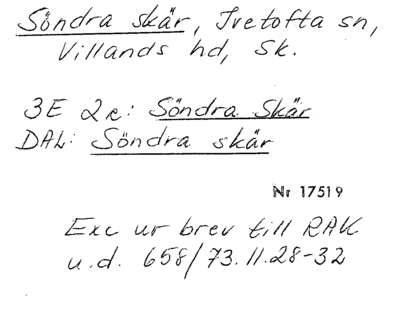 Söndra skär, Ivetofta sn,
Villands hd, Sk.
3E 2c: Söndra Skär
DAL: Söndra skär
Nr 17519
Exc ur brev till RAK
u.d. 658/73.11.28-32